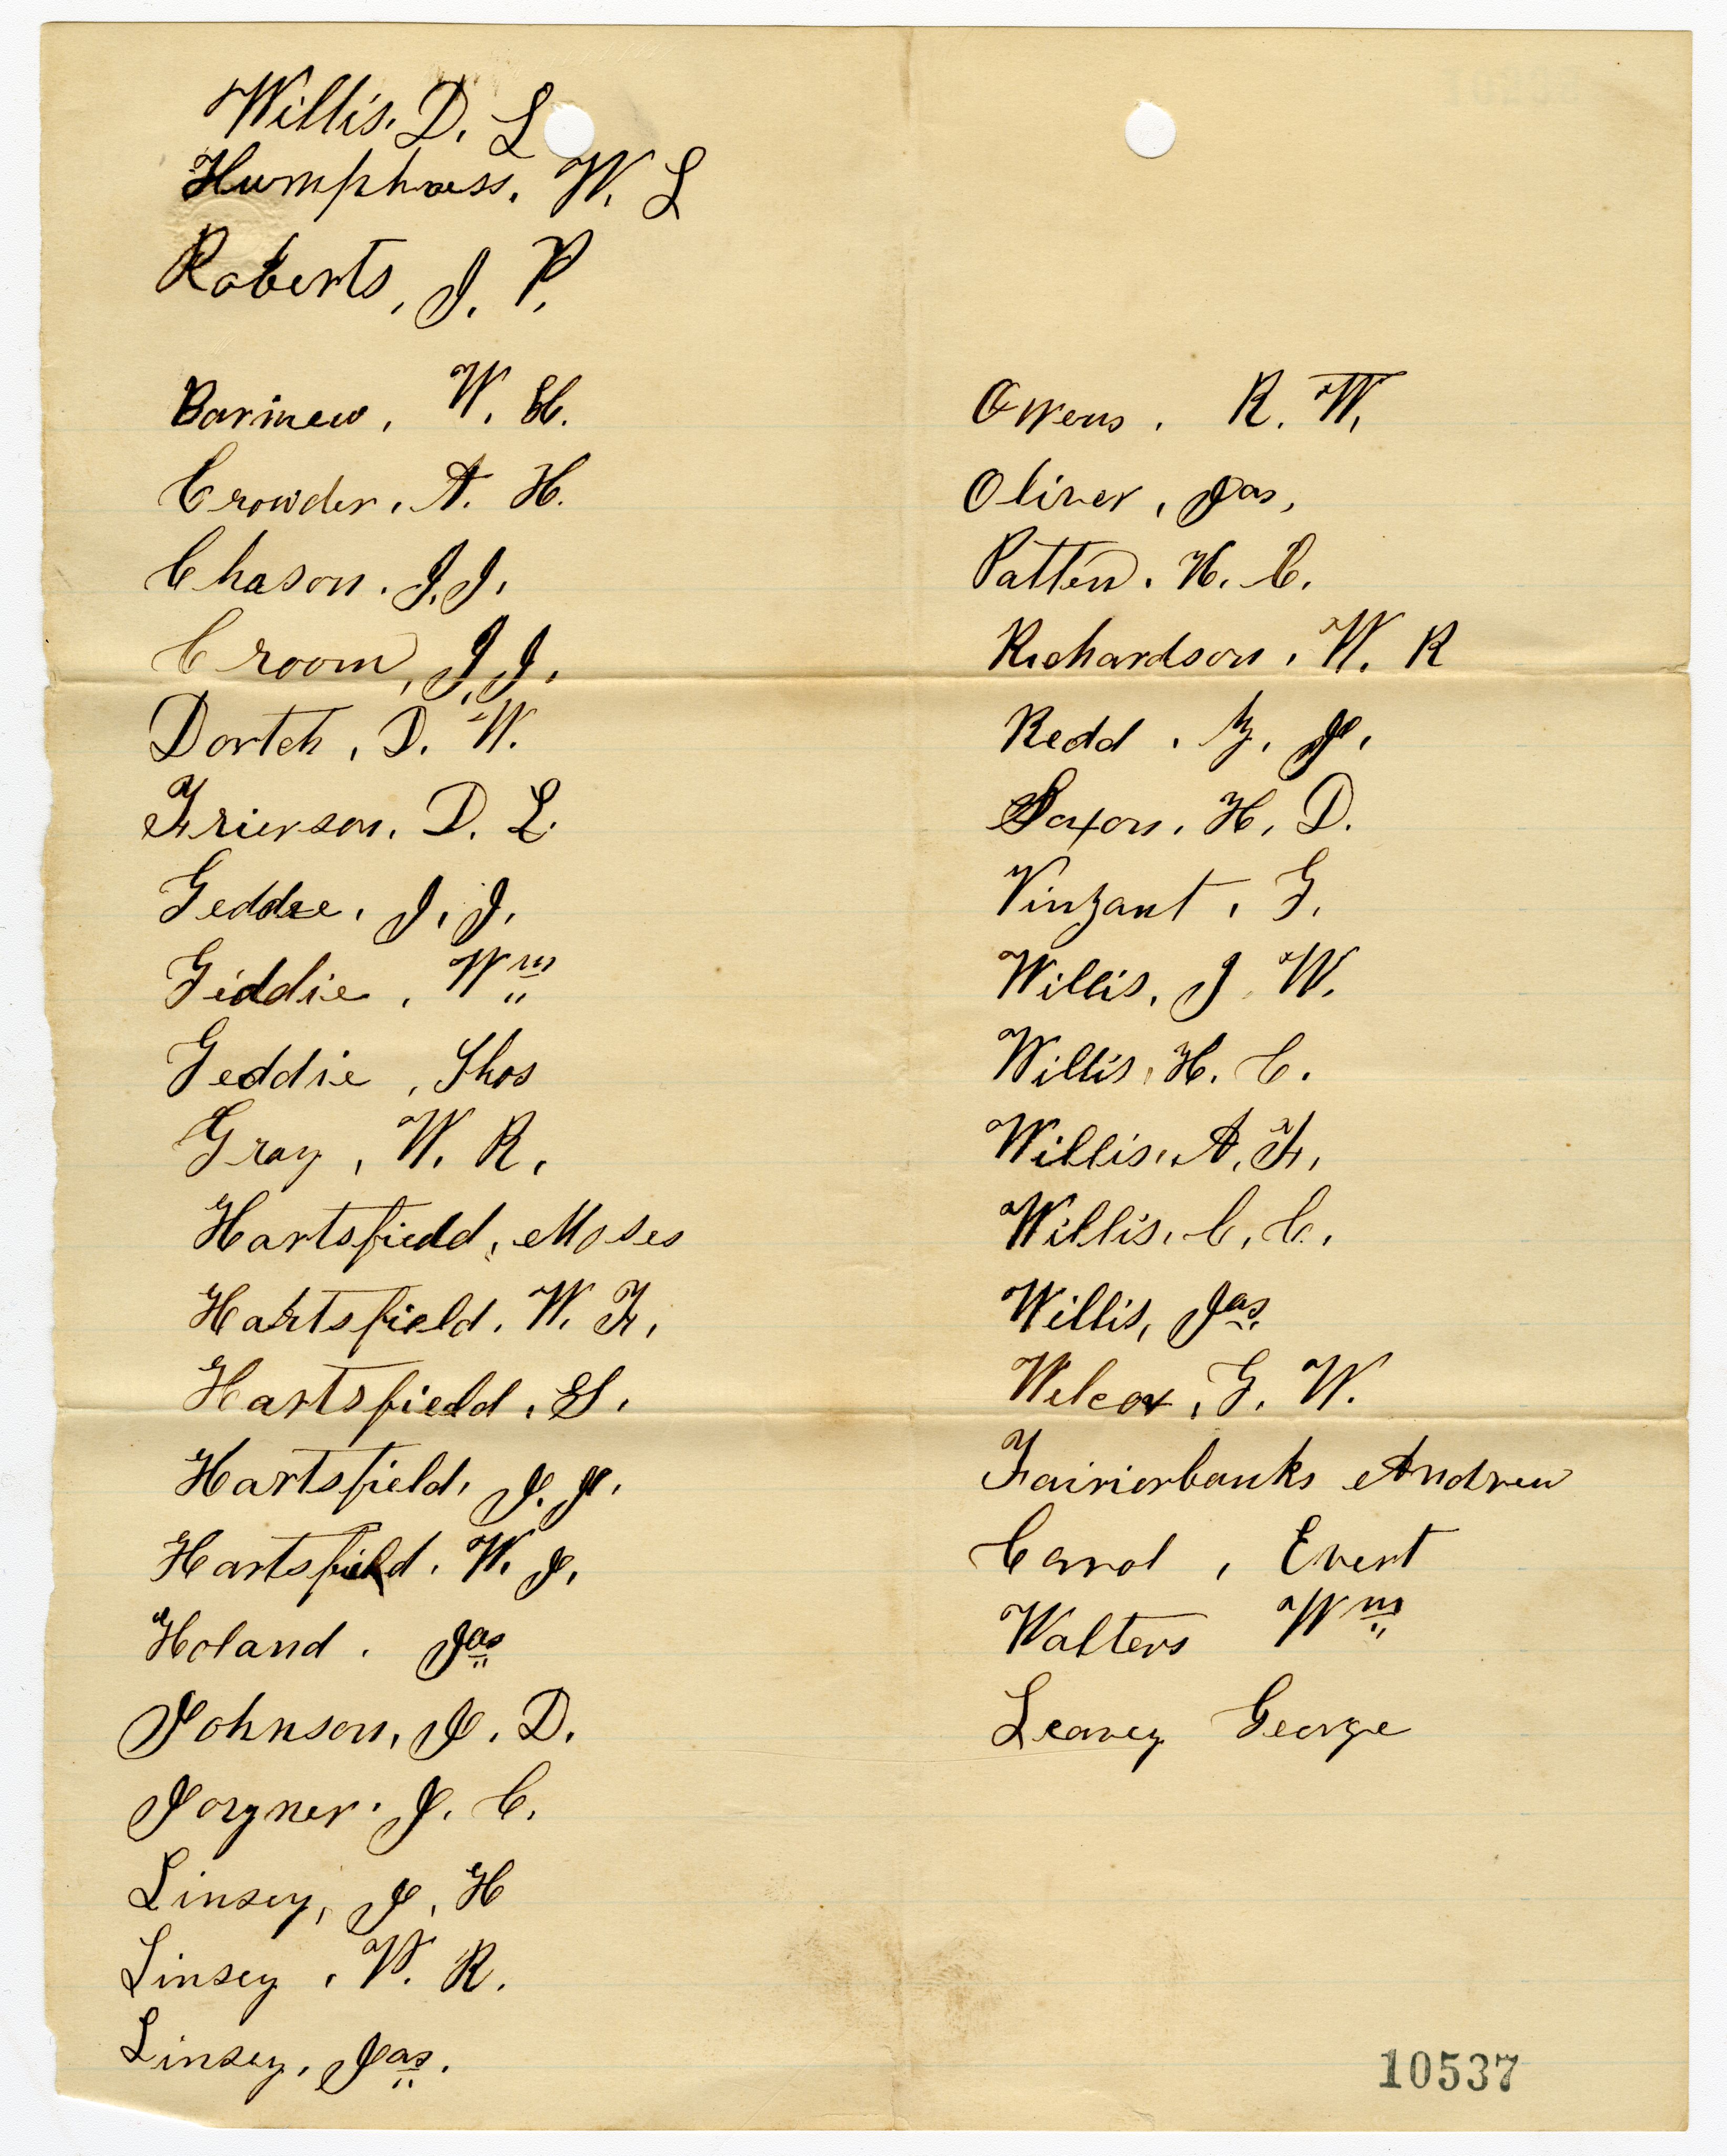 Willis. D. L
Humphress. W. L
Roberts, J. P.
Barinew, W. H.
Crowder, A. H.
Chason. J. J.
Croom, J. J.
Dortch, D. W.
Frierson. D. L.
Geddie. J. J.
Giddie, Wm
Geddie, Thos
Gray, W. R.
Hartsfield, Moses
Hartsfield. W. F.
Hartsfield. S.
Hartsfield, J. J.
Hartsfield. W. J.
Holand. Jas
Johnson, J. D.
Joryner. J. C.
Linsey, J. H
Linsey, W. R.
Linsey, Jas.
Owens. R. W.
Oliver, Jas,
Patten. H. C.
Richardson, W. R
Redd. Z. J.
Saxon, H. D.
Vinzant, G.
Willis, J W.
Willis, H. C.
Willis, A. F.
Willis. C. C.
Willis, Jas.
Wilcox, G. W.
Fairierbanks Andrew
Carrol, Evert
Walters Wm
Leavey George
10537